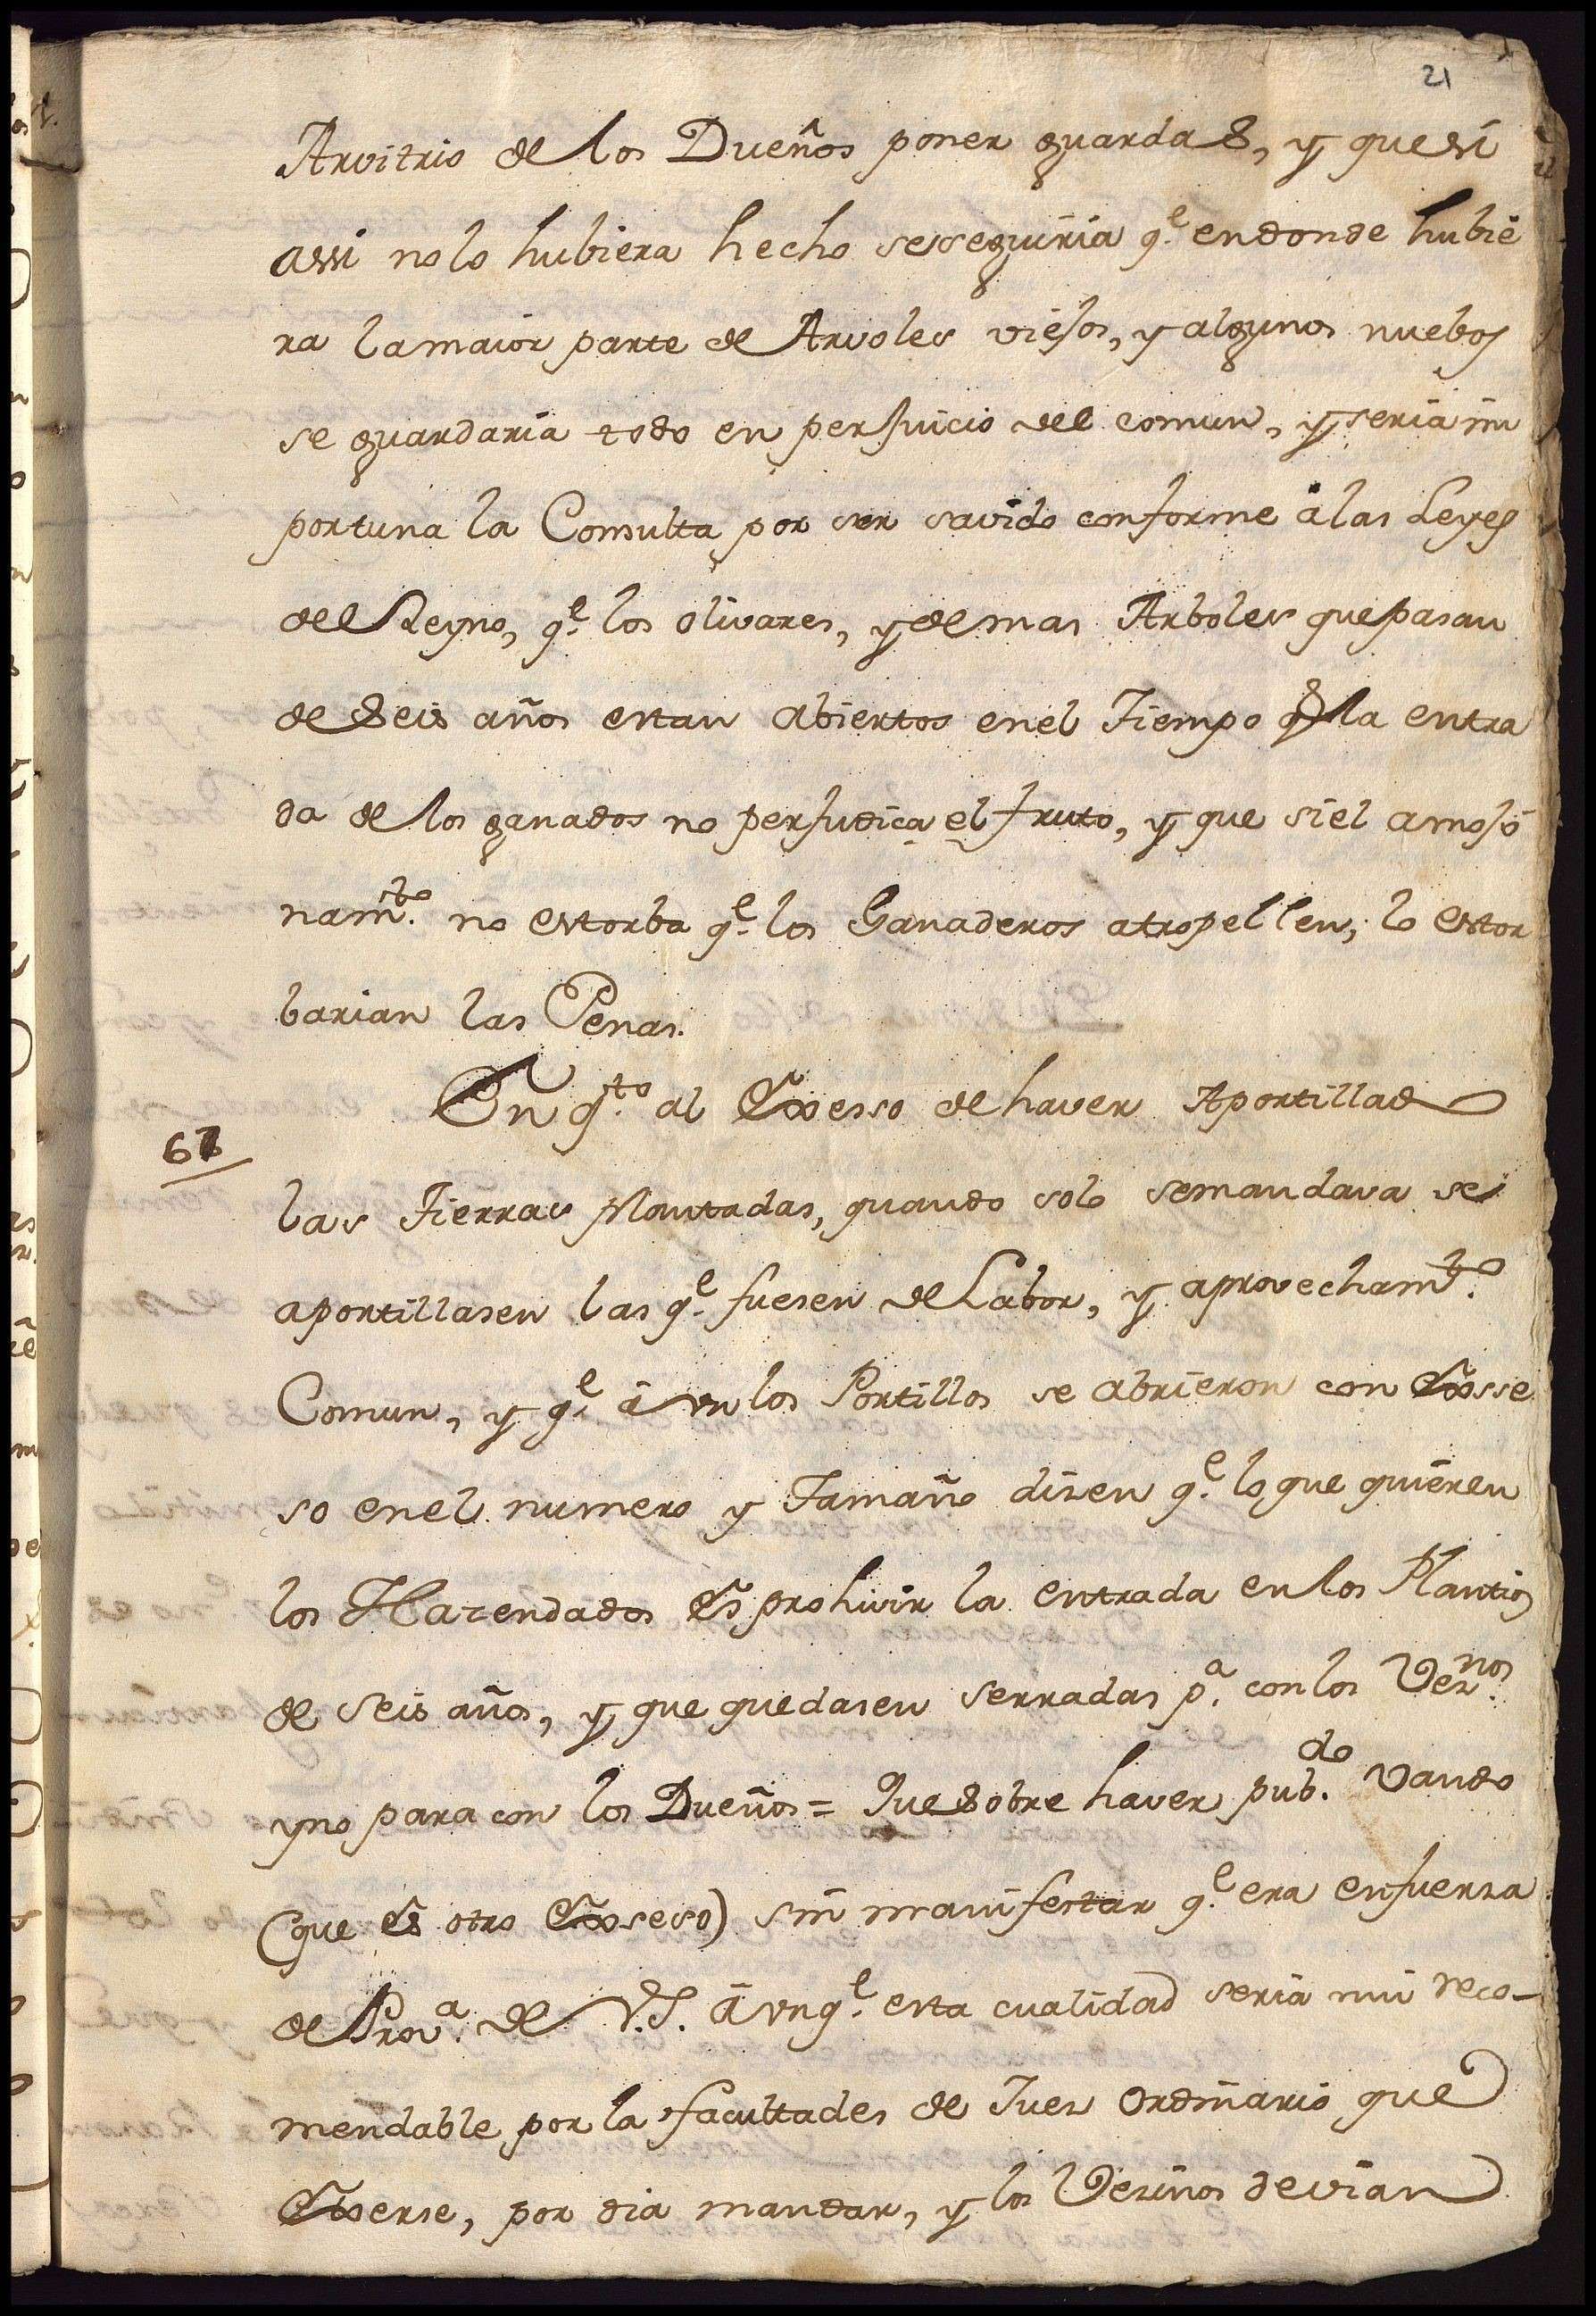 21
Arvitrio de los Dueños poner guardas, y que si
assi no lo hubiera hecho se seguiria q.e en donde hubie
ra la maior parte de Arvoles viejos, y algunos nuebos
se guardaria todo en perjuicio del comun, y seria im
portuna la Consulta por ser savido conforme â las Leyes
del Reyno, q.e los olivares, y demas Arboles que pasan
de seis años estan abiertos en el Tiempo q.e la entra
da de los ganados no perjudica el fruto, y que si el amojo
nam.to no estorba q.e los Ganaderos atropellen, lo estor
barian las Penas.
En q.to al Exsesso de haver Aportillado
67
las Tierras Plantadas, quando solo se mandava se
aportillasen las q.e fuesen de Labor, y aprovecham.to
Comun, y q.e â un los Portillos se abrieron con Exsse
so en el numero y Tamaño disen q.e lo que quieren
los Hazendados Es prohivir la entrada en los Plantios
de seis años, y que quedasen serradas p.a con los Vez.nos
y no para con los Dueños = Que sobre haver pub.do Vando
(que es otro Exseso) sin manifestar q.e era en fuersa
de Prov.a de V.S. â unq.e esta cualidad seria mui reco-
mendable por la facultades de Jues Ordinario que
Exserse, por dia mandar, y los Vesinos devian